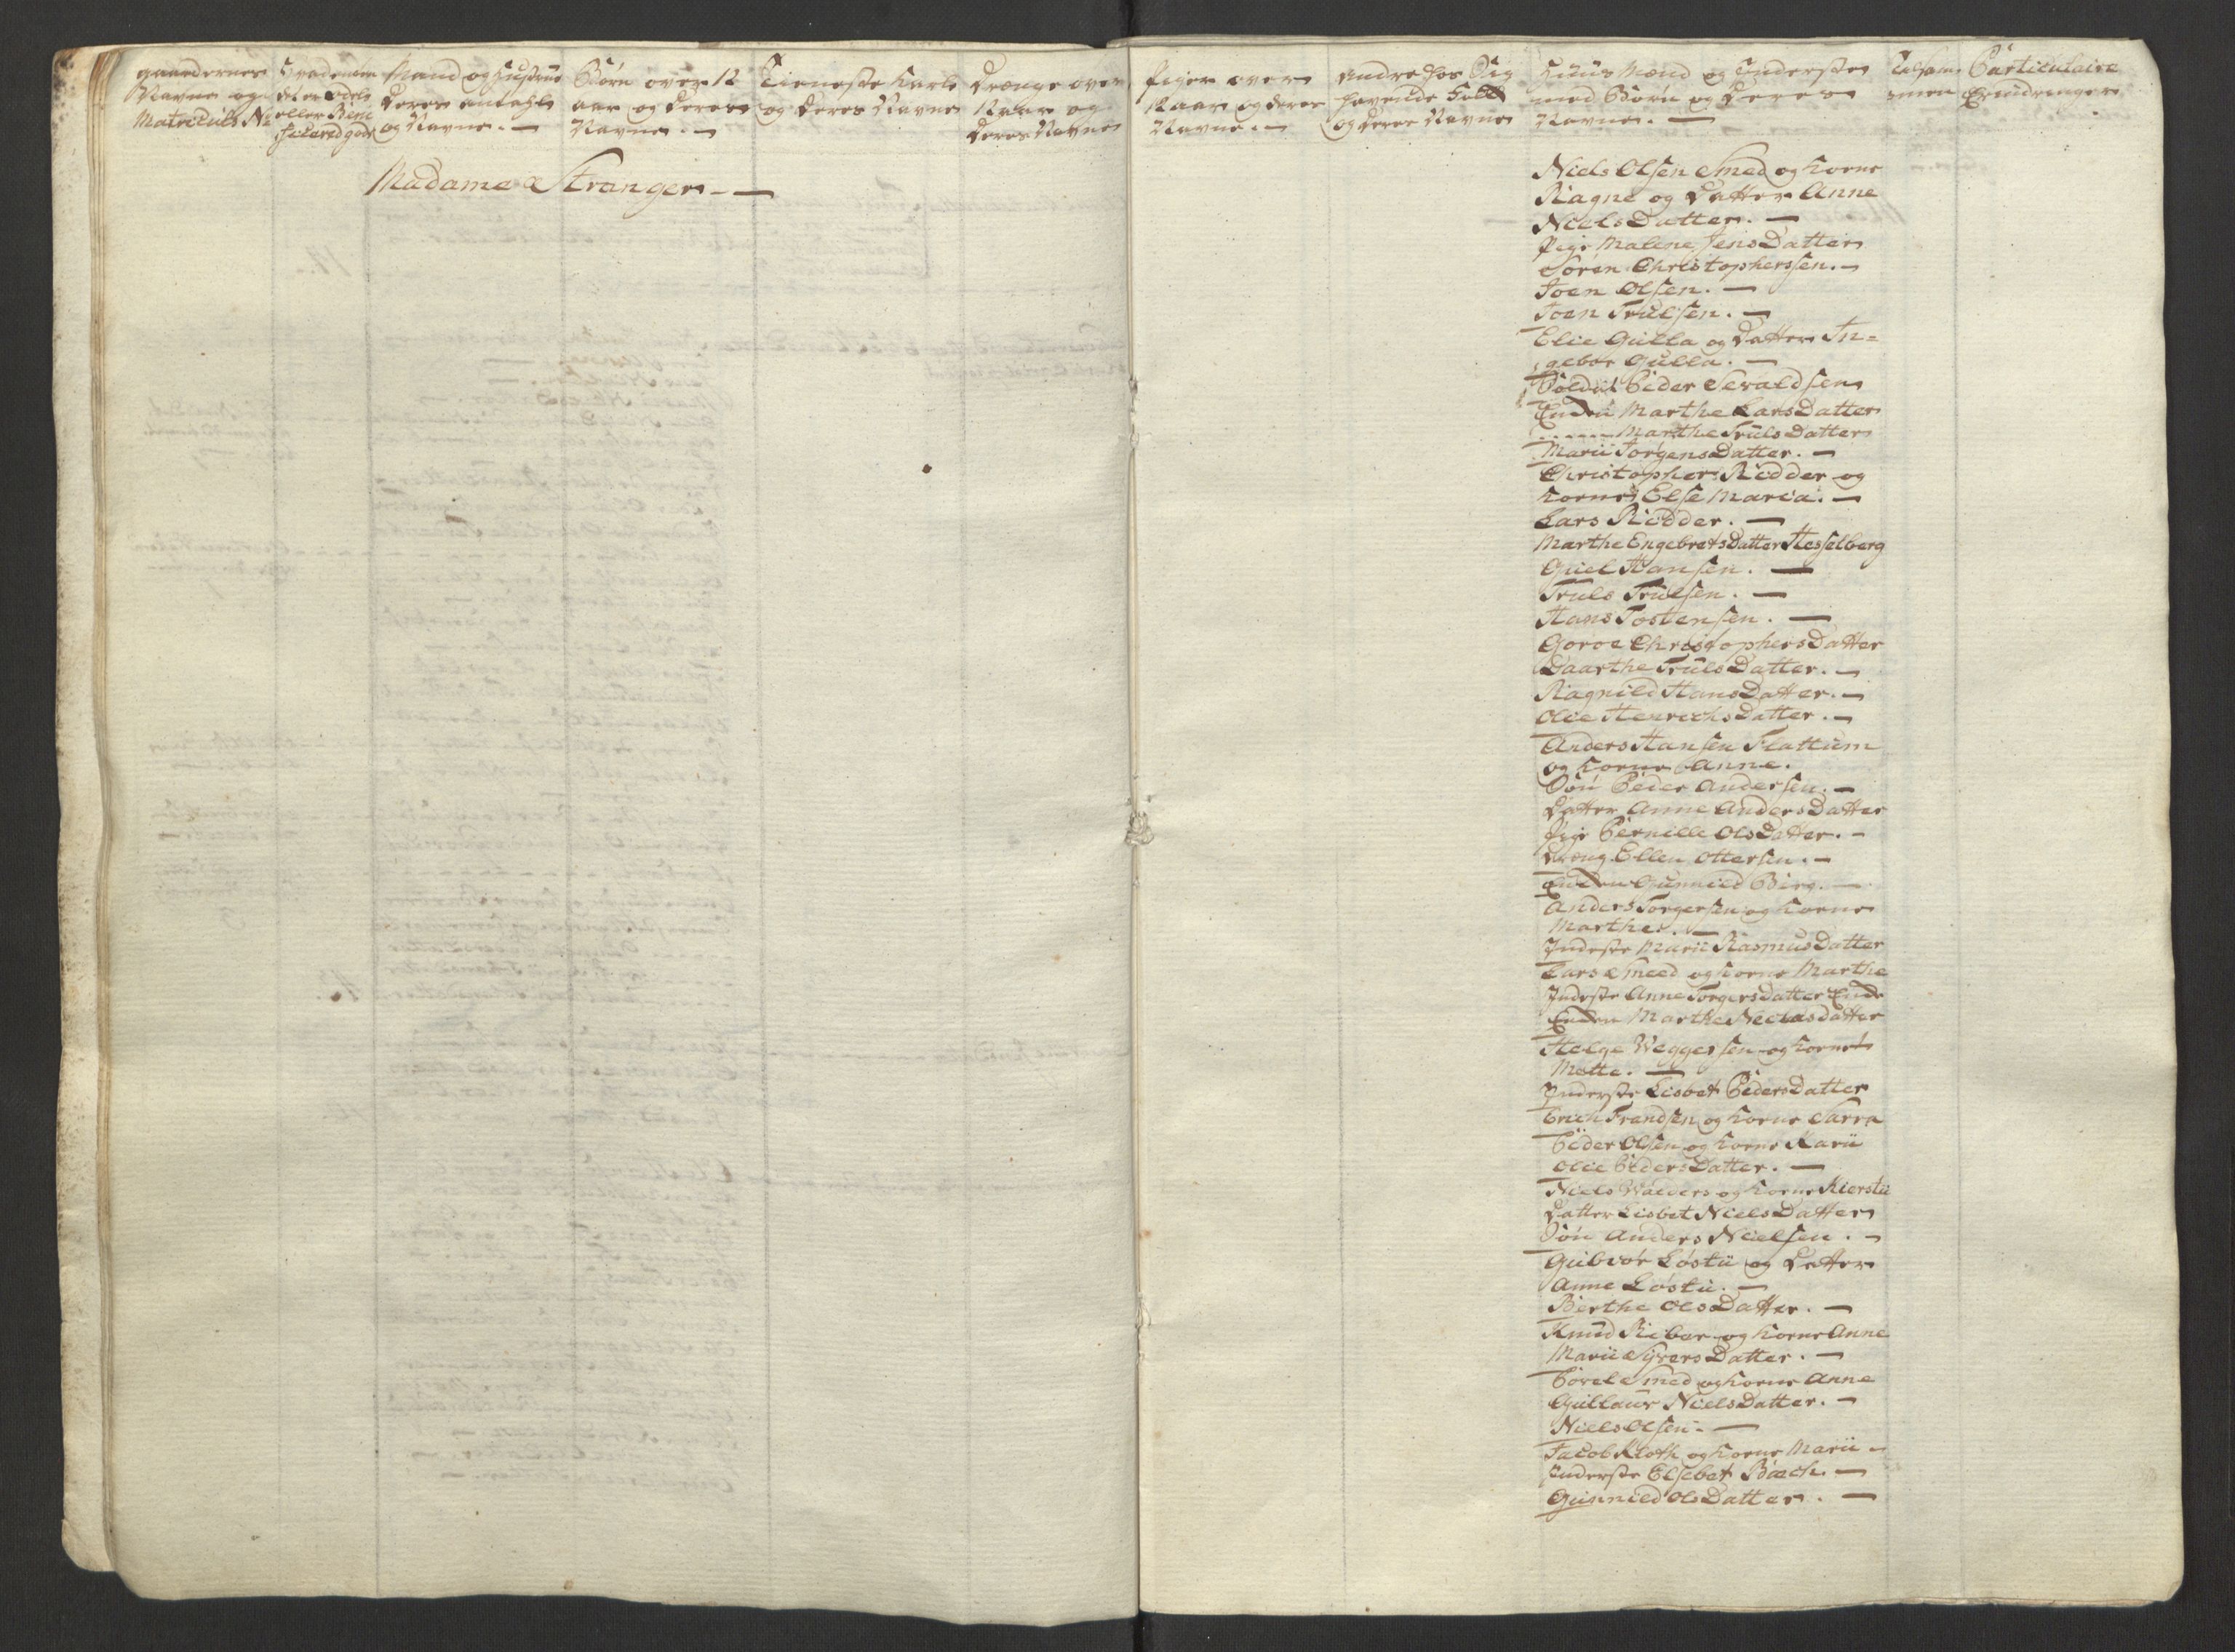 gaardernes
Navne og
Matriculs No
Hvad enten
det er Odels
eller Bene
ficeered gods
Mand og Hustrue
Deres antahl
og Navne. —
Børn over 12
aar og deres
Navne. —
Tieneste Karle
og deres Navne
Drænge over
12 aar og
deres Navne
Piger over
12 aar og deres
Navne. —
Andre hos Sig
havende Folk
og deres Navne
Huus Mænd og Inderster
med Børn og Deres
Navne. —
Tilsam
men
Particulaire
Erindringer
Madame Stranger — —
Niels Olsen Smed og Kone
Ragne og Datter Anne
Niels Datter. —
Pige Malene Jens Datter
Søren Christophersen. —
Joen Olsen. —
Joen Trulsen. —
Elie Gulla og Datter In=
gebor Gulla. —
Soldat Peder Sevaldsen
Enken Marthe Lars Datter
----- Marthe Truls Datter
Marii Jørgens Datter. —
Christopher Ridder og
Kone Else Maria. —
Lars Ridder. —
Marthe Engebrets Datter Hesselberg
Giiel Hansen. —
Truls Trulsen. —
Hans Tostensen. —
Goroe Christophers Datter
Daarthe Truls Datter. —
Ragnild Hans Datter. —
Olie Henrichs Datter. —
Anders Hansen Flattum
og Kone Anne.
Søn Peder Andersen. —
Datter Anne Anders Datter
Pige Pernille Ols Datter. —
Dreng Ellen Ottersen. —
Enken Gunnild Berg. —
Anders Torgersen og Kone
Marthe. —
Inderste Marii Rasmus Datter
Lars Smed og Kone Marthe
Inderste Anne Torgers Datter Enke
Enken Marthe Neclas datter
Helge Weggersen og Kone
Mette. —
Inderste Lisbet Peders Datter
Erich Frandsen og Kone Sarra
Peder Olsen og Kone Karii
Olie Peders Datter. —
Niels Walders og Kone Kierstii
Datter Lisbet Niels Datter
Søn Anders Nielsen. —
Gubiør Løstu og Datter
Anne Løstu. —
Berthe Ols Datter. —
Knud Ribar og Kone Anne
Marii Syvers Datter. —
Povel Smed og Kone Anne
Gullaur Niels Datter. —
Niels Olsen. —
Jacob Kloth og Kone Marii —
Inderste Elsebet Bæch. —
Gunnild Ols Datter. —